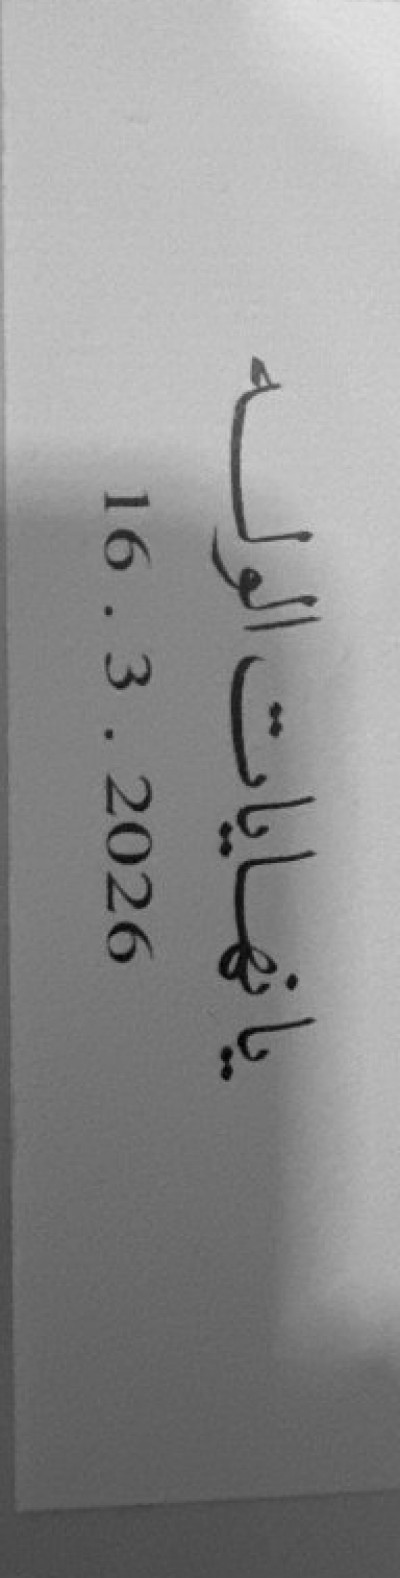 يا نهايات الوله
16 . 3 . 2026